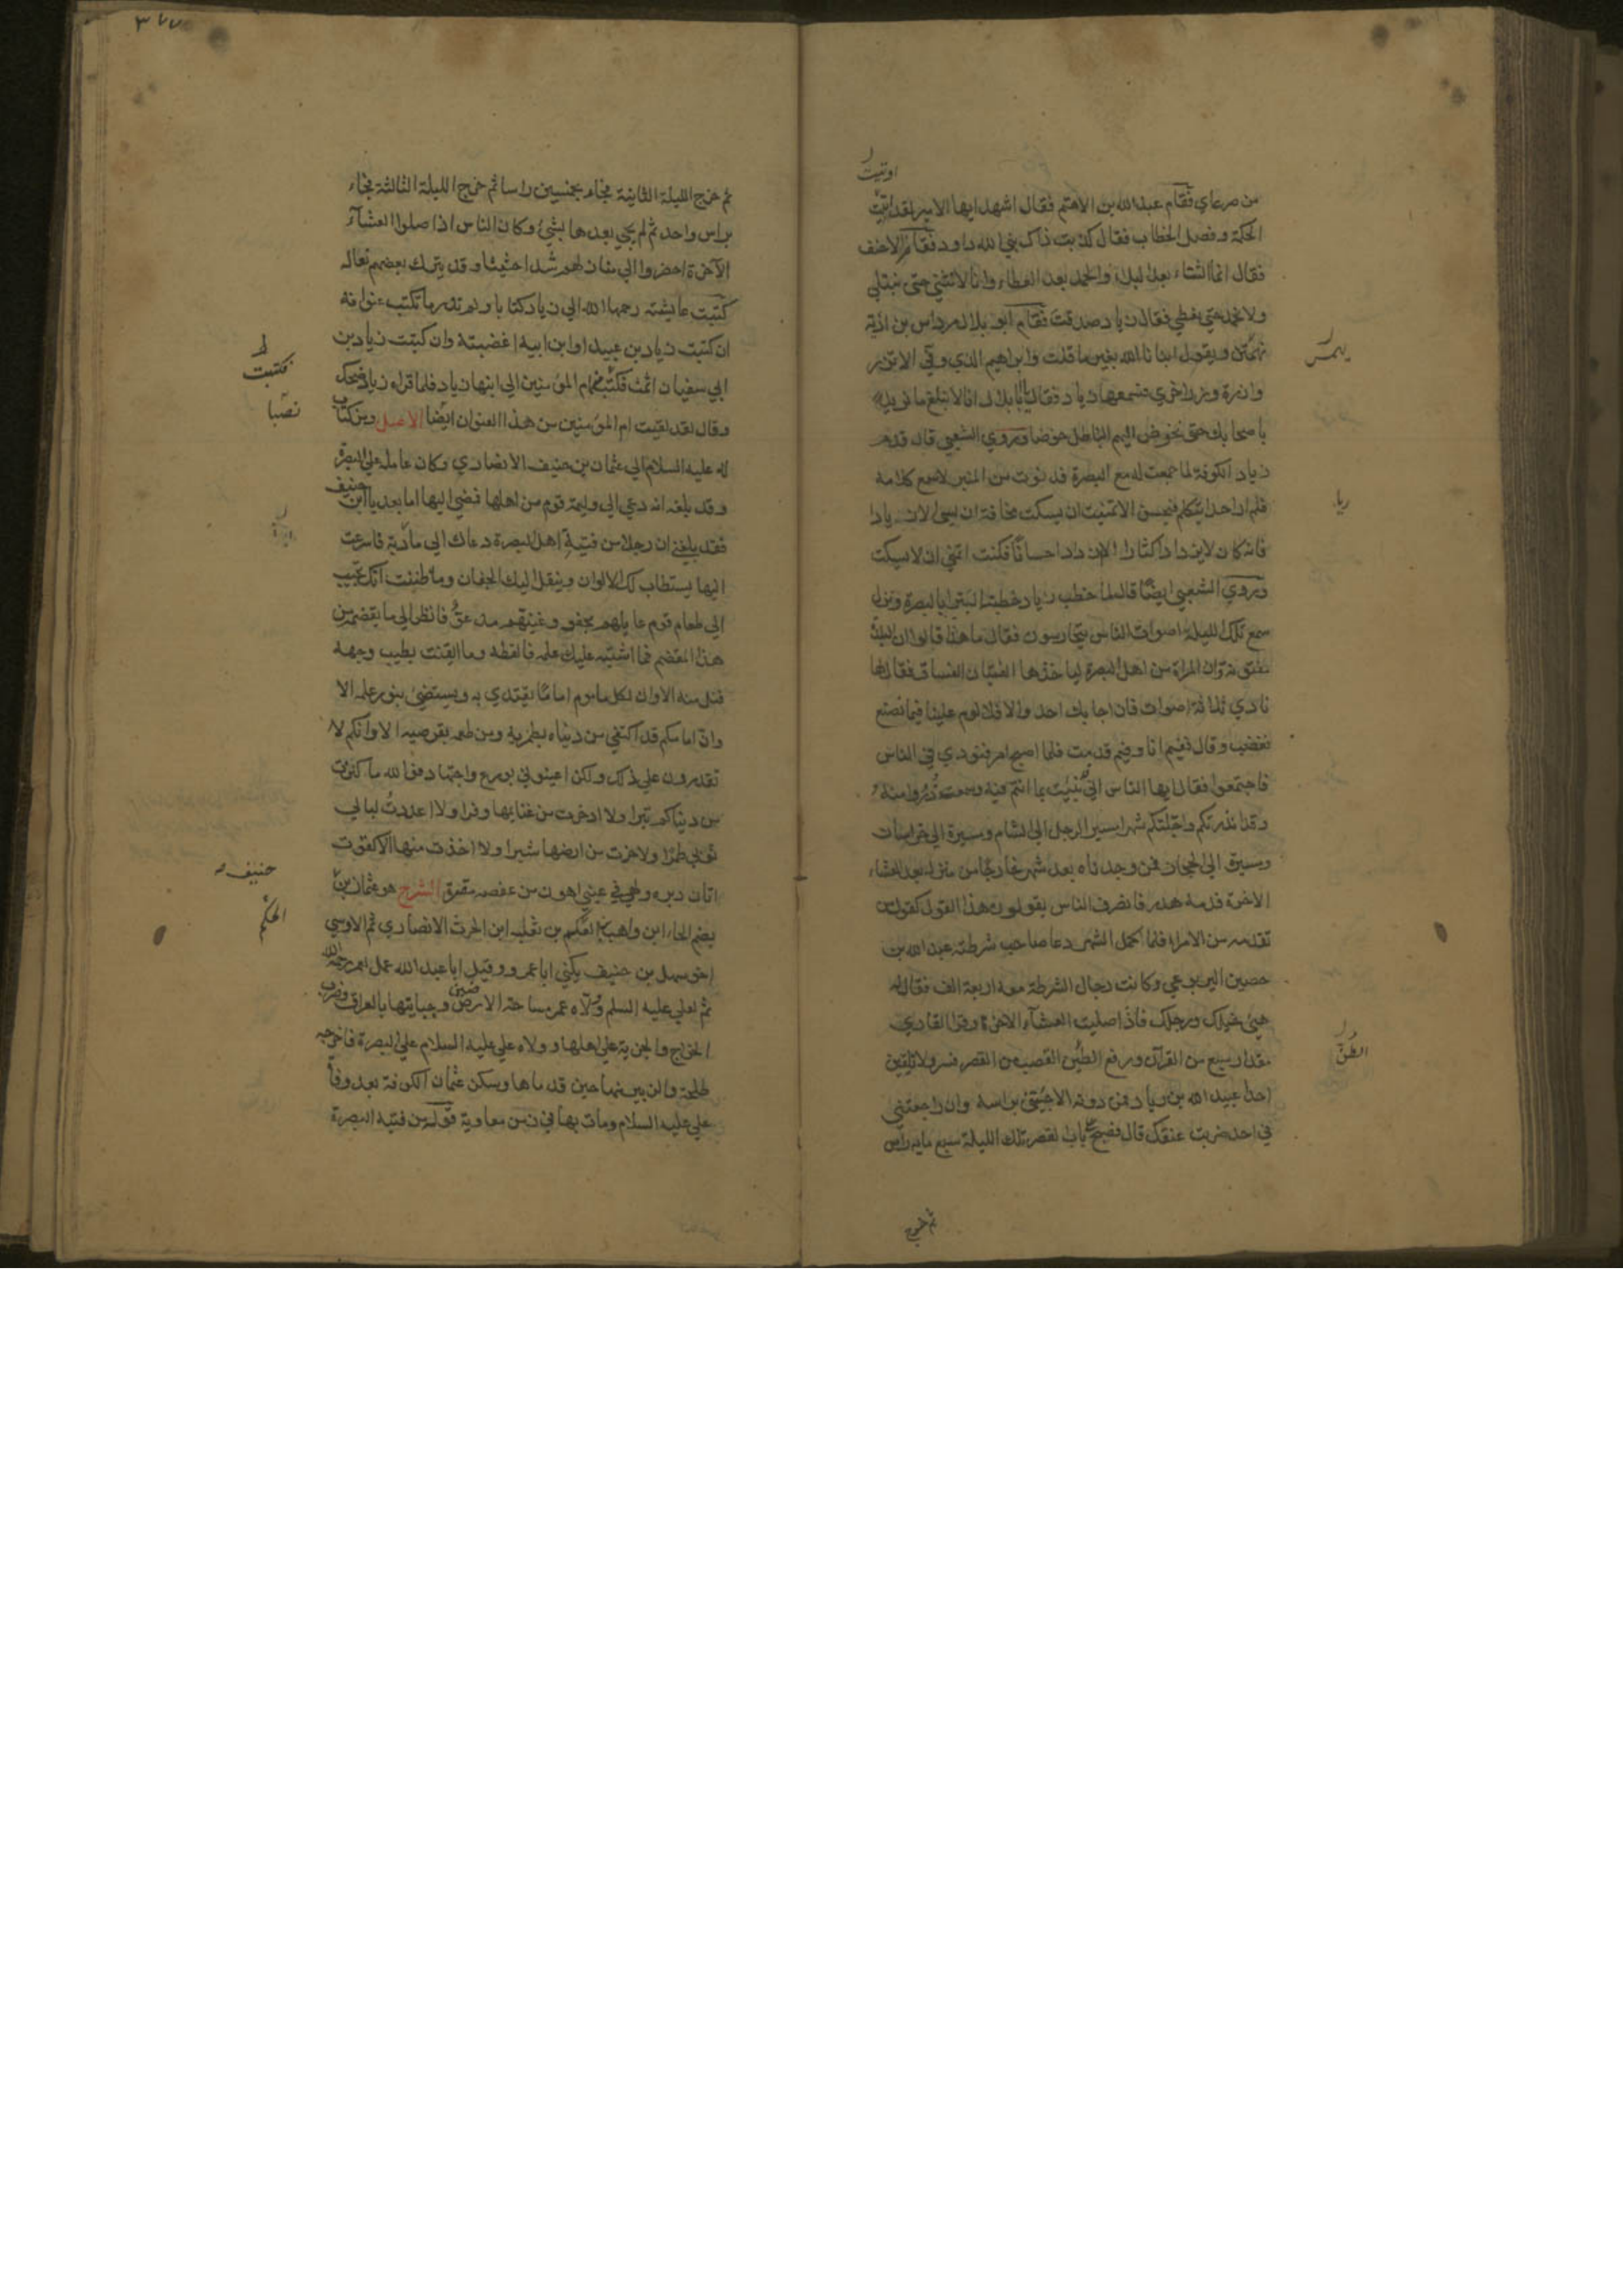 اوتيت
من صرعاي فقام عبد الله بن الاهتم فقال اشهد ايها الامير لقد اتيت
الحكمة وفصل الخطاب فقال كذبت ذاك نبي الله داود فقام الاحنف
فقال انما الثناء بعد البلاء والحمد بعد العطاء وانا لا نثني حتى نبتلي
ولا نحمد حتى نعطي فقال زياد صدقت فقام ابو بلال مرداس بن ادية
يهمس ويقول انبانا الله بغير ما قلت وابراهيم الذي وفي الا تزر
وازرة وزر اخرى فسمعها زياد فقال يا با بلال انا لا نبلغ ما نريد
باصحابك حتى نخوض اليهم الباطل خوضا وروي الشعبي قال قدم
زياد الكوفة لما جمعت له مع البصرة فدنوت من المنبر لاسمع كلامه
فلم ار احدا يتكلم فيحسن الا تمنيت ان يسكت مخافة ان يسي الا زيادا
فانه كان لا يزداد اكثارا الا ازداد احسانا فكنت اتمني ان لا يسكت
وروي الشعبي ايضا قال لما خطب زياد خطبته البترا بالبصرة ونزل
سمع تلك الليلة اصوات الناس يتحارسون فقال ما هذا قالوا ان البلد
مفتونة وان المراة من اهل البصرة لياخذها الفتيان الفساق فيقال لها
نادي ثلاثة اصوات فان اجابك احد والا فلا لوم علينا فيما نصنع
فغضب وقال ففيم انا وفيم قدمت فلما اصبح امر فنودي في الناس
فاجتمعوا فقال ايها الناس اني نبئت بما انتم فيه وسمعت ذروا منه
وقد انذرتكم واجلتكم شهرا مسير الرجل الي الشام ومسيره الي خراسان
ومسيره الي الحجاز فمن وجدناه بعد شهر خارجا من منزله بعد العشاء
الاخرة فدمه هدر فانصرف الناس يقولون هذا القول كقول من
تقدمه من الامراء فلما كمل الشهر دعا صاحب شرطته عبد الله بن
حصين اليربوعي وكانت رجال الشرطة معه اربعة الف فقال له
هيئ خيلك ورجلك فاذا صليت العشاء الاخرة وقرا القاري
مقدار سبع من القرآن ورفع الطن القصب من القصر فسر ولا تلقين
احدا عبيد الله بن زياد فمن دونه الا جئتني براسه وان راجعتني
في احد ضربت عنقك قال فصبح علي باب القصر تلك الليلة سبع مايه راس
ثم خرج
يهمس
ربا
الطن
٣٧٧
ثم خرج الليلة الثانية فجاء بخمسين راسا ثم خرج الليلة الثالثة فجاء
براس واحد ثم لم يجي بعدها بشئ وكان الناس اذا صلوا العشاء
الآخرة احضروا الي منازلهم شدا حثيثا وقد يترك بعضهم نعاله
كتبت عايشة رحمها الله الي زياد كتابا ولم تدر ما تكتب عنوانه
ان كتبت زياد بن عبيد او ابن ابيه اغضبته وان كتبت زياد بن
ابي سفيان اثمت فكتبت من ام المؤمنين الي ابنها زياد فلما قراه زياد ضحك
وقال لقد لقيت ام المؤمنين من هذا العنوان ايضا الاصل ومن كتاب
له عليه السلام الي عثمان بن حنيف الانصاري وكان عامله علي البصرة
وقد بلغه انه دعي الي وليمة قوم من اهلها فمضي اليها اما بعد يا ابن حنيف
فقد بلغني ان رجلا من فتية اهل البصرة دعاك الي مأدبة فاسرعت
اليها يستطاب لك الالوان وينقل اليك الجفان وما ظننت انك تجيب
الي طعام قوم عايلهم مجفو وغنيهم مدعو فانظر الي ما تقضمه من
هذا المقضم فما اشتبه عليك علمه فالفظه وما ايقنت بطيب وجهه
فنل منه الا وان لكل ماموم اماما يقتدي به ويستضئ بنور علمه الا
وان امامكم قد اكتفي من دنياه بطمريه ومن طعمه بقرصيه الا وانكم لا
تقدرون علي ذلك ولكن اعينوني بورع واجتهاد فوالله ما كنزت
من دنياكم تبرا ولا ادخرت من غنايمها وفرا ولا اعددت لبالي
ثوبي طمرا ولا حزت من ارضها شبرا ولا اخذت منها الا كقوت
اتان دبره ولهي في عيني اهون من عفصه مقره الشرح هو عثمان بن
بضم الحاء ابن واهب بن العكيم بن ثعلبه ابن الحرث الانصاري ثم الاوسي
اخو سهل بن حنيف يكني ابا عمرو وقيل ابا عبد الله عمل لعمر رحمه الله
ثم لعلي عليه السلم وولاه عمر مساحة الارضين وجبايتها بالعراق وضرب
الخراج والجزية علي اهلها وولاه علي عليه السلام علي البصرة فاخرجه
طلحة والزبير منها حين قدماها وسكن عثمان الكوفة بعد وفاة
علي عليه السلام ومات بها في زمن معاوية قوله من فتية البصرة
فكتبت
نصبا
حنيف
الحكم